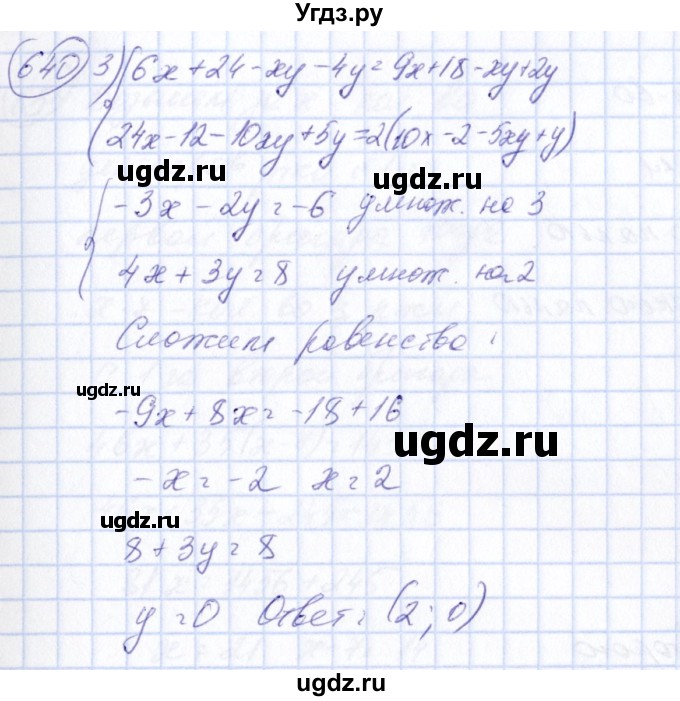 Угдз.ру
640 3) 6x+24-xy-4y=9x+18-xy+2y
24x-12-10xy+5y=2(10x-2-5xy+y)
ugdz.ru ugdz.ru
-3x-2y=-6 умнож. на 3
4x+3y=8 умнож. на 2
Сложим равенства:
ugdz.ru
-9x+8x=-18+16
ugdz.ru
-x=-2 x=2
ugdz.ru
8+3y=8
y=0 Ответ: (2; 0)
ugdz.ru